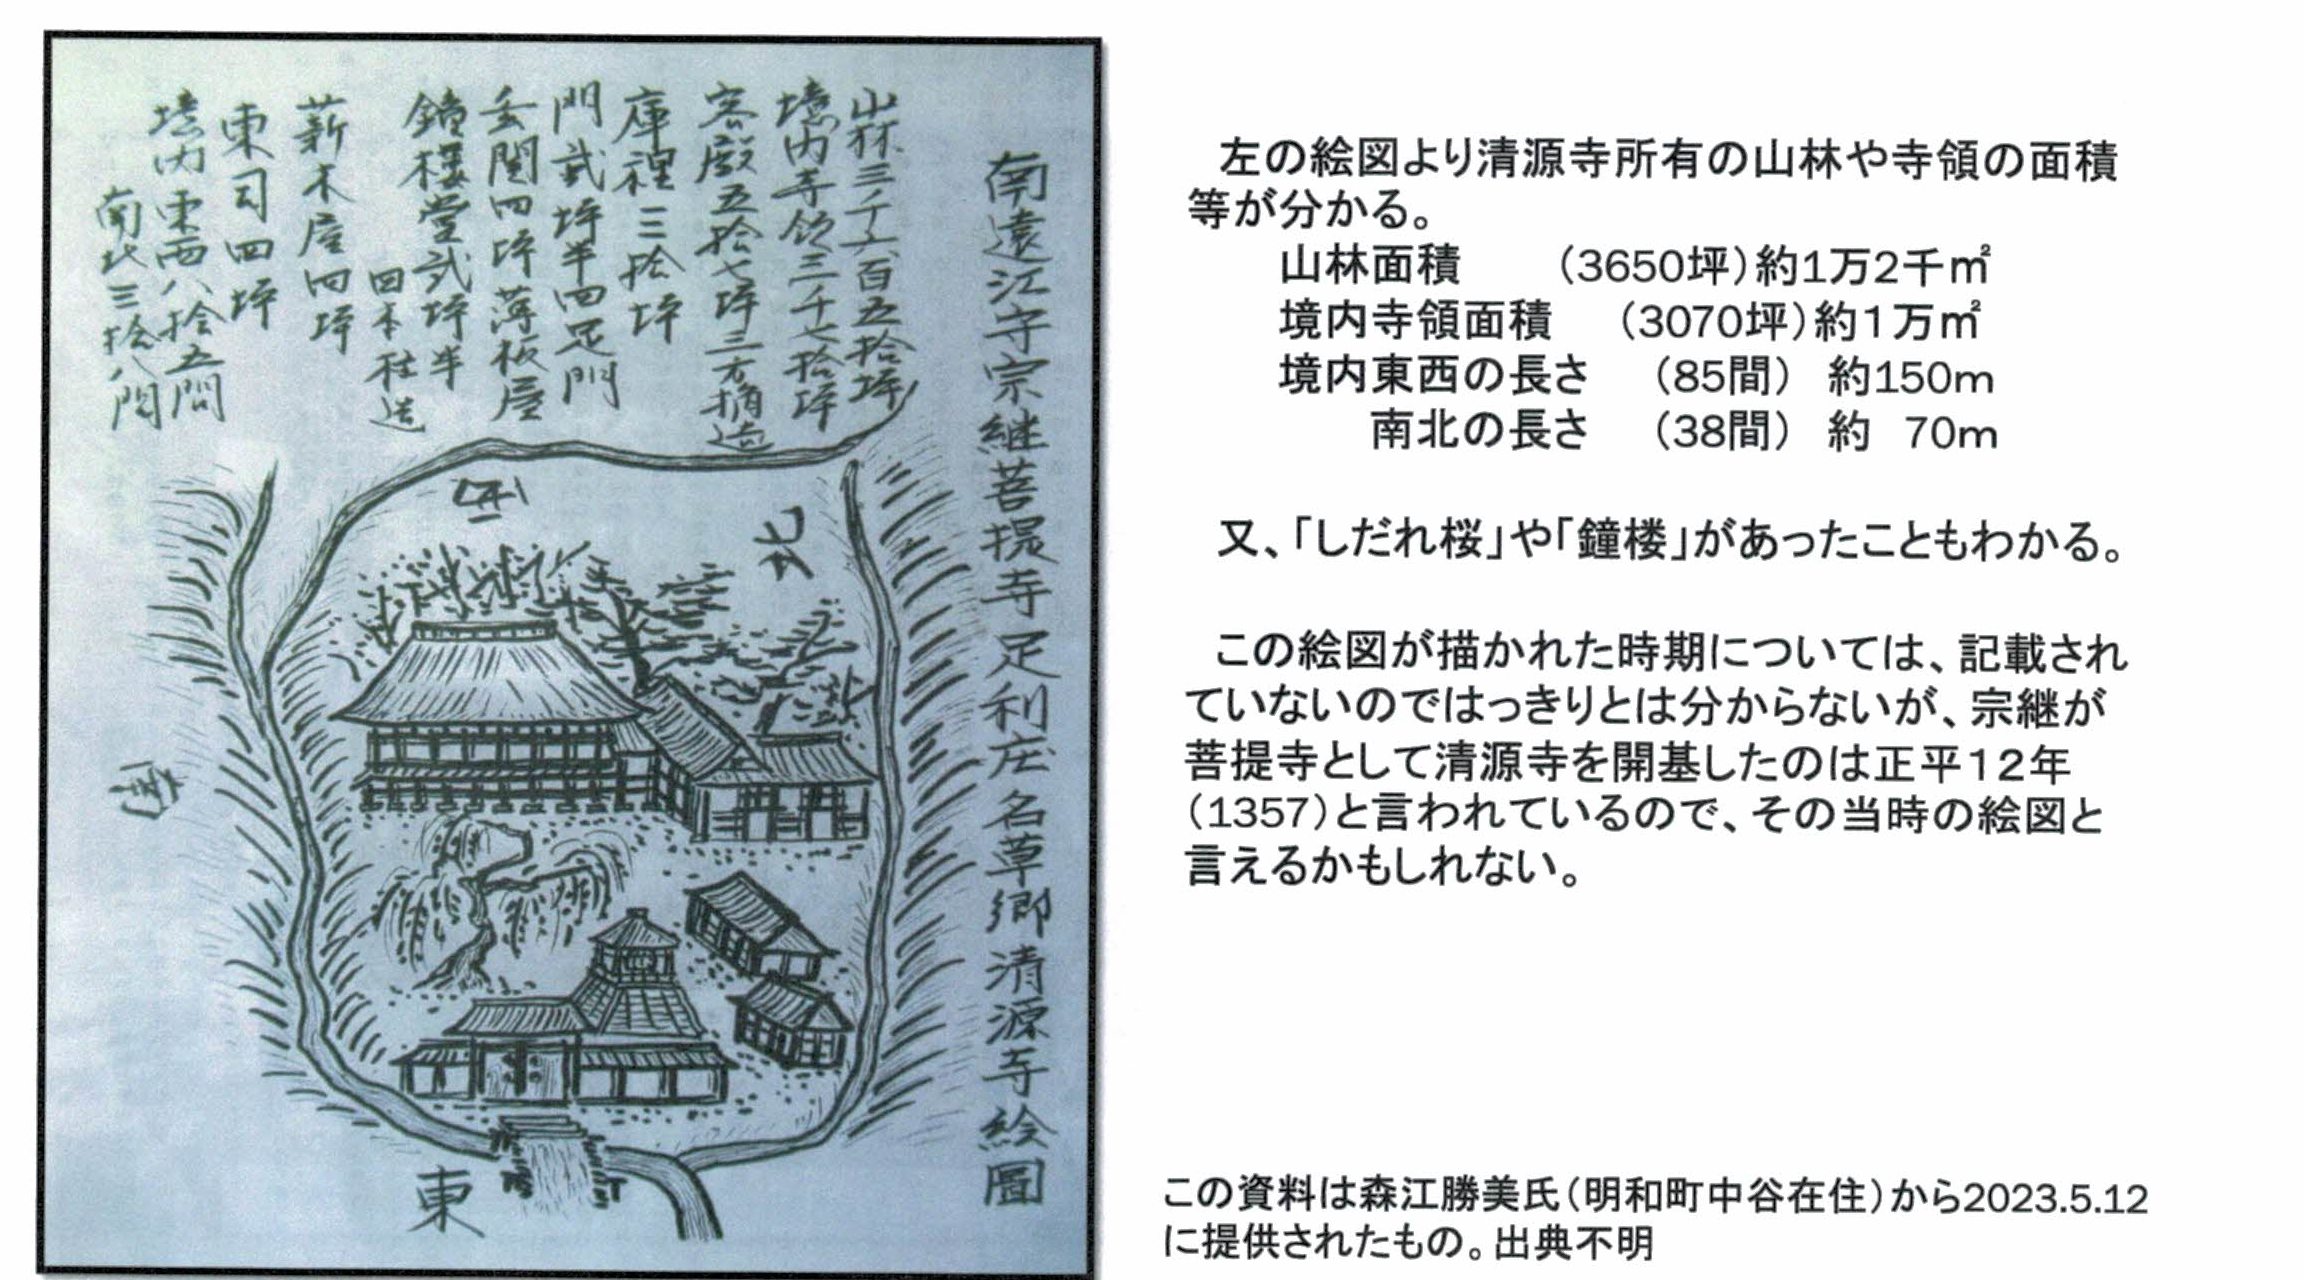 南遠江守宗継菩提寺足利庄名草郷清源寺絵圖
山林三千六百五拾坪
境内寺領三千七拾坪
客殿五拾七坪三方椽造
庫裡三拾坪
門貳坪半四足門
玄関四坪薄板屋
鐘楼堂貳坪半
四本柱造
薪木屋四坪
東司四坪
境内東西八拾五間
南北三拾八間
西
北
南
東
左の絵図より清源寺所有の山林や寺領の面積
等が分かる。
山林面積 (3650坪)約1万2千㎡
境内寺領面積 (3070坪)約1万㎡
境内東西の長さ (85間) 約150m
南北の長さ (38間) 約 70m
又、「しだれ桜」や「鐘楼」があったこともわかる。
この絵図が描かれた時期については、記載され
ていないのではっきりとは分からないが、宗継が
菩提寺として清源寺を開基したのは正平12年
(1357)と言われているので、その当時の絵図と
言えるかもしれない。
この資料は森江勝美氏(明和町中谷在住)から2023.5.12
に提供されたもの。出典不明